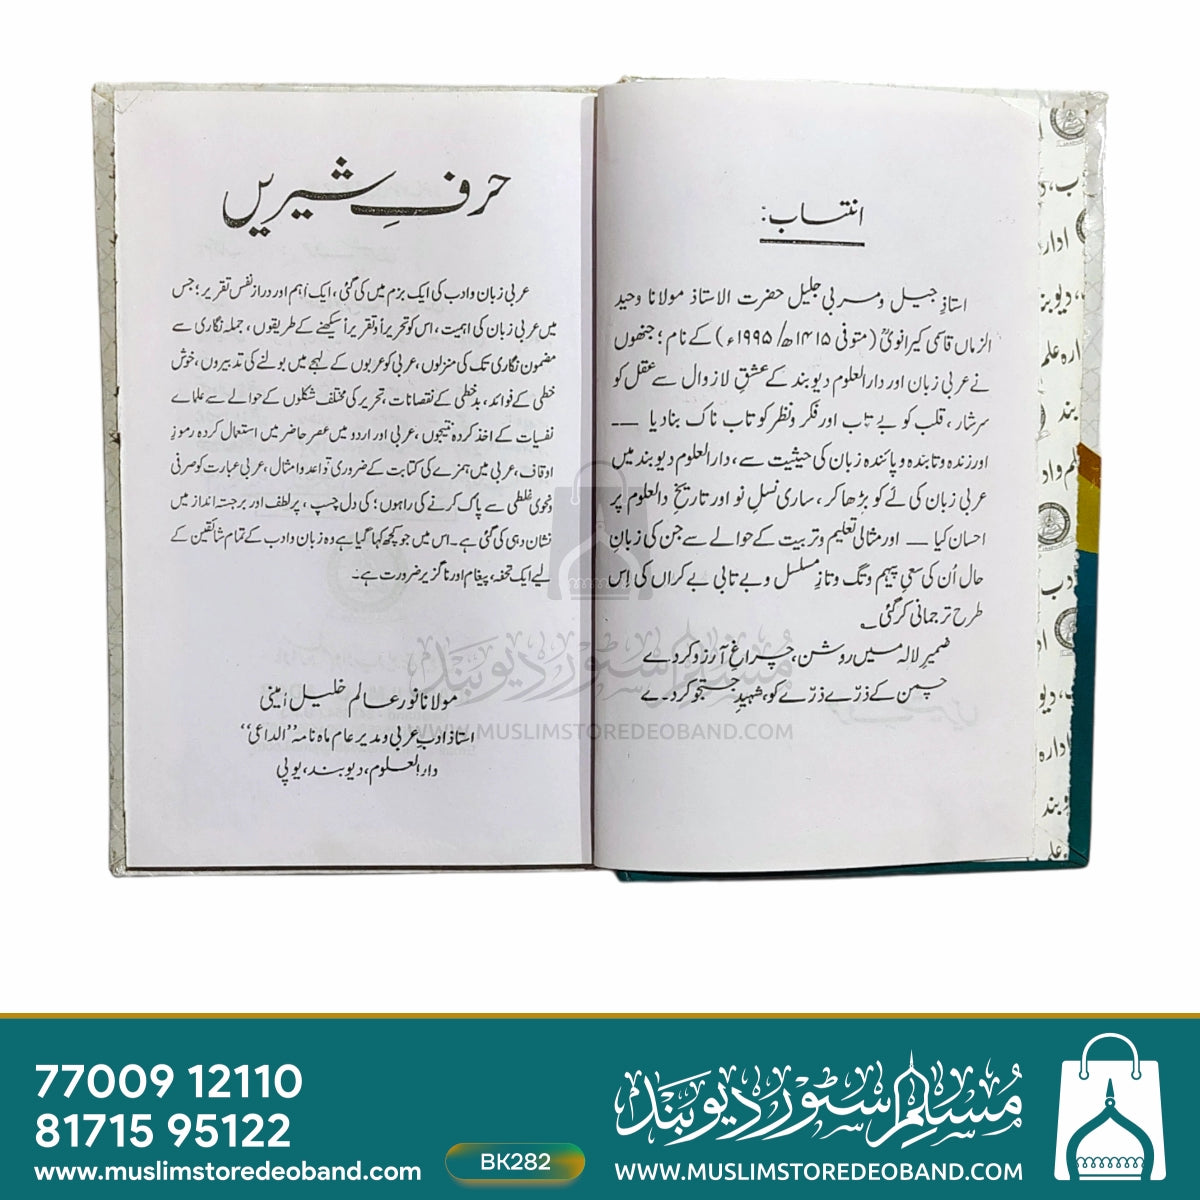 انتساب:
استاذِ جیل و مربی جلیل حضرت الاستاذ مولانا وحید
الزماں قاسمی کیرانویؒ (متوفی ۱۴۱۵ھ/ ۱۹۹۵ء) کے نام؛ جنھوں
نے عربی زبان اور دارالعلوم دیوبند کے عشقِ لازوال سے عقل کو
سرشار، قلب کو بے تاب اور فکر و نظر کو تاب ناک بنادیا —
اور زندہ و تابندہ و پائندہ زبان کی حیثیت سے، دارالعلوم دیوبند میں
عربی زبان کی لَے کو بڑھا کر، ساری نسلِ نو اور تاریخِ دالعلوم پر
احسان کیا — اور مثالی تعلیم و تربیت کے حوالے سے جن کی زبانِ
حال اُن کی سعیِ پیہم و تگ و تازِ مسلسل و بے تابی بے کراں کی اِس
طرح ترجمانی کرگئی۔
ضمیرِ لالہ میں روشن، چراغِ آرزو کردے
چمن کے ذرّے ذرّے کو، شہیدِ جستجو کردے۔
حرفِ شیریں
عربی زبان و ادب کی ایک بزم میں کی گئی، ایک اہم اور دراز نفس تقریر؛ جس
میں عربی زبان کی اہمیت، اس کو تحریراً و تقریراً سیکھنے کے طریقوں، جملہ نگاری سے
مضمون نگاری تک کی منزلوں، عربی کو عربوں کے لہجے میں بولنے کی تدبیروں، خوش
خطی کے فوائد، بدخطی کے نقصانات، تحریر کی مختلف شکلوں کے حوالے سے علمائے
نفسیات کے اخذ کردہ نتیجوں، عربی اور اردو میں عصرِ حاضر میں استعمال کردہ رموزِ
اوقاف، عربی میں ہمزے کی کتابت کے ضروری قواعد و امثال، عربی عبارت کو صرفی
و نحوی غلطی سے پاک کرنے کی راہوں؛ کی دل چسپ، پر لطف اور برجستہ انداز میں
نشان دہی کی گئی ہے۔ اس میں جو کچھ کہا گیا ہے وہ زبان و ادب کے تمام شائقین کے
لیے ایک تحفہ، پیغام اور ناگزیر ضرورت ہے۔
مولانا نور عالم خلیل امینی
استاذ ادبِ عربی و مدیر عام ماہ نامہ "الداعی"
دارالعلوم، دیوبند، یوپی
مسلم سٹور دیوبند
WWW.MUSLIMSTOREDEOBAND.COM
77009 12110
81715 95122
www.muslimstoredeoband.com
BK282
مسلم سٹور دیوبند
WWW.MUSLIMSTOREDEOBAND.COM